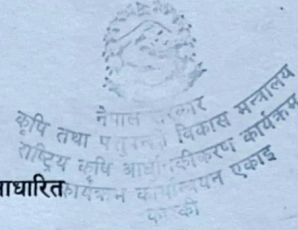 नेपाल सरकार
कृषि तथा पशुपन्छी विकास मन्त्रालय
राष्ट्रिय कृषि आधुनिकीकरण कार्यक्रम
कार्यक्रम कार्यान्वयन एकाइ
कास्की
ाधारित